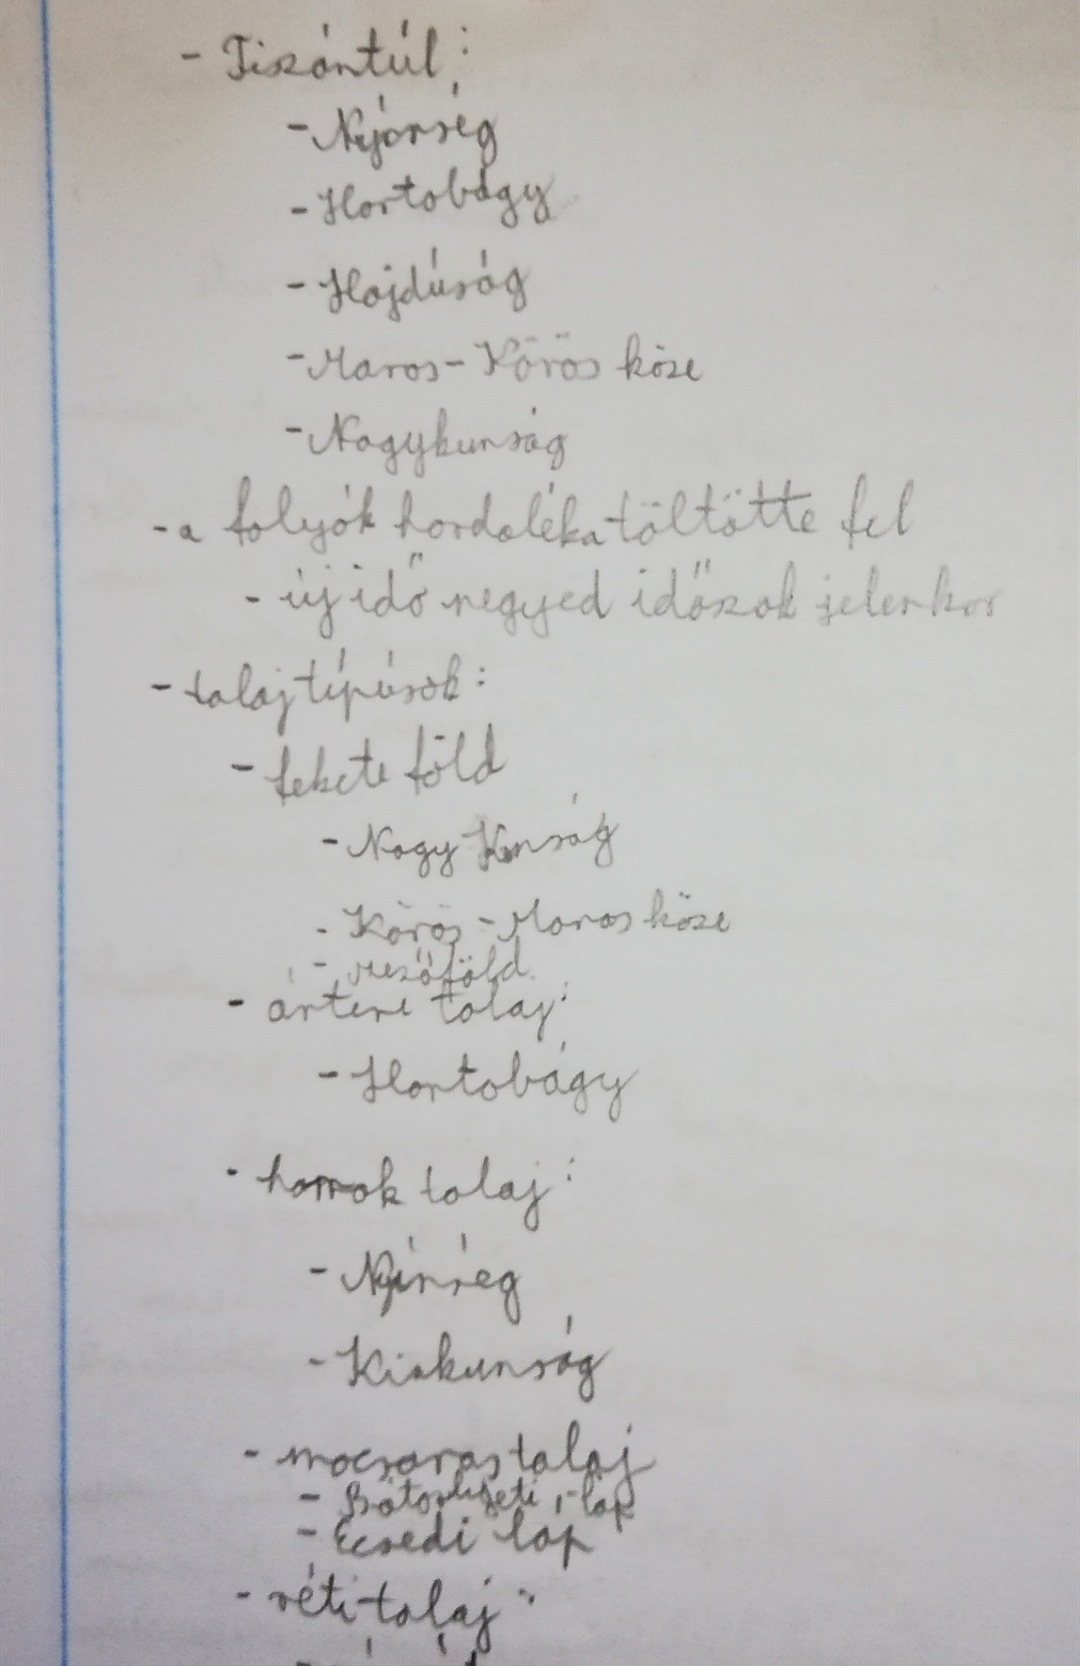 - Tiszántúl:
- Nyírség
- Hortobágy
- Hajdúság
- Maros-Körös köze
- Nagykunság
- a folyók hordaléka töltötte fel
- új idő negyed időszak jelenkor
- talajtípúsok:
- fekete föld
- Nagy Kunság
- Körös-Maros köze
- Mezőföld
- ártéri talaj:
- Hortobágy
- homok talaj:
- Nyírség
- Kiskunság
- mocsaras talaj
- Bátorligeti-láp
- Ecsedi láp
- réti talaj: